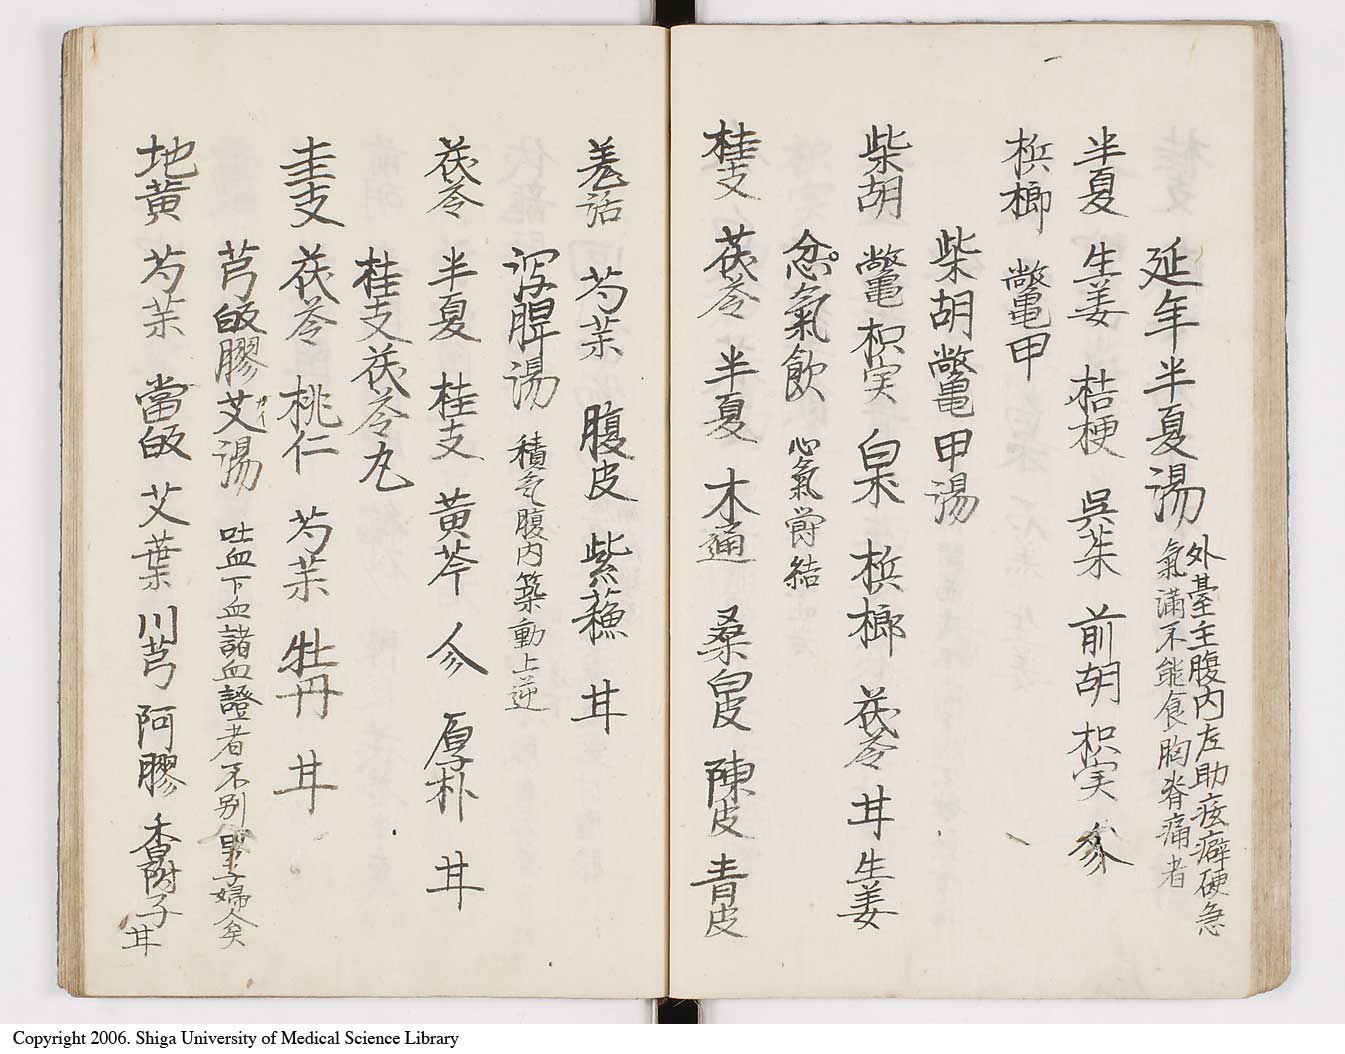 延年半夏湯 外臺主腹内左助痃癖硬急
氣滿不能食胸脊痛者
半夏 生姜 桔梗 呉茱 前胡 枳実 参
檳榔 鱉甲
柴胡鱉甲湯
柴胡 鱉甲 枳実 白朮 檳榔 茯苓 甘 生姜
忿氣飲 心氣欝結
桂支 茯苓 半夏 木通 桑白皮 陳皮 青皮
羗活 芍薬 腹皮 紫蘓 甘
瀉脾湯 積気腹内築動上逆
茯苓 半夏 桂支 黄芩 参 厚朴 甘
桂支茯苓丸
圭支 茯苓 桃仁 芍薬 牡丹 甘
芎皈膠艾湯 吐血下血諸血證者不別男子婦人矣
ガイ
地黄 芍薬 當皈 艾葉 川芎 阿膠 香附子 甘
Copyright 2006. Shiga University of Medical Science Library